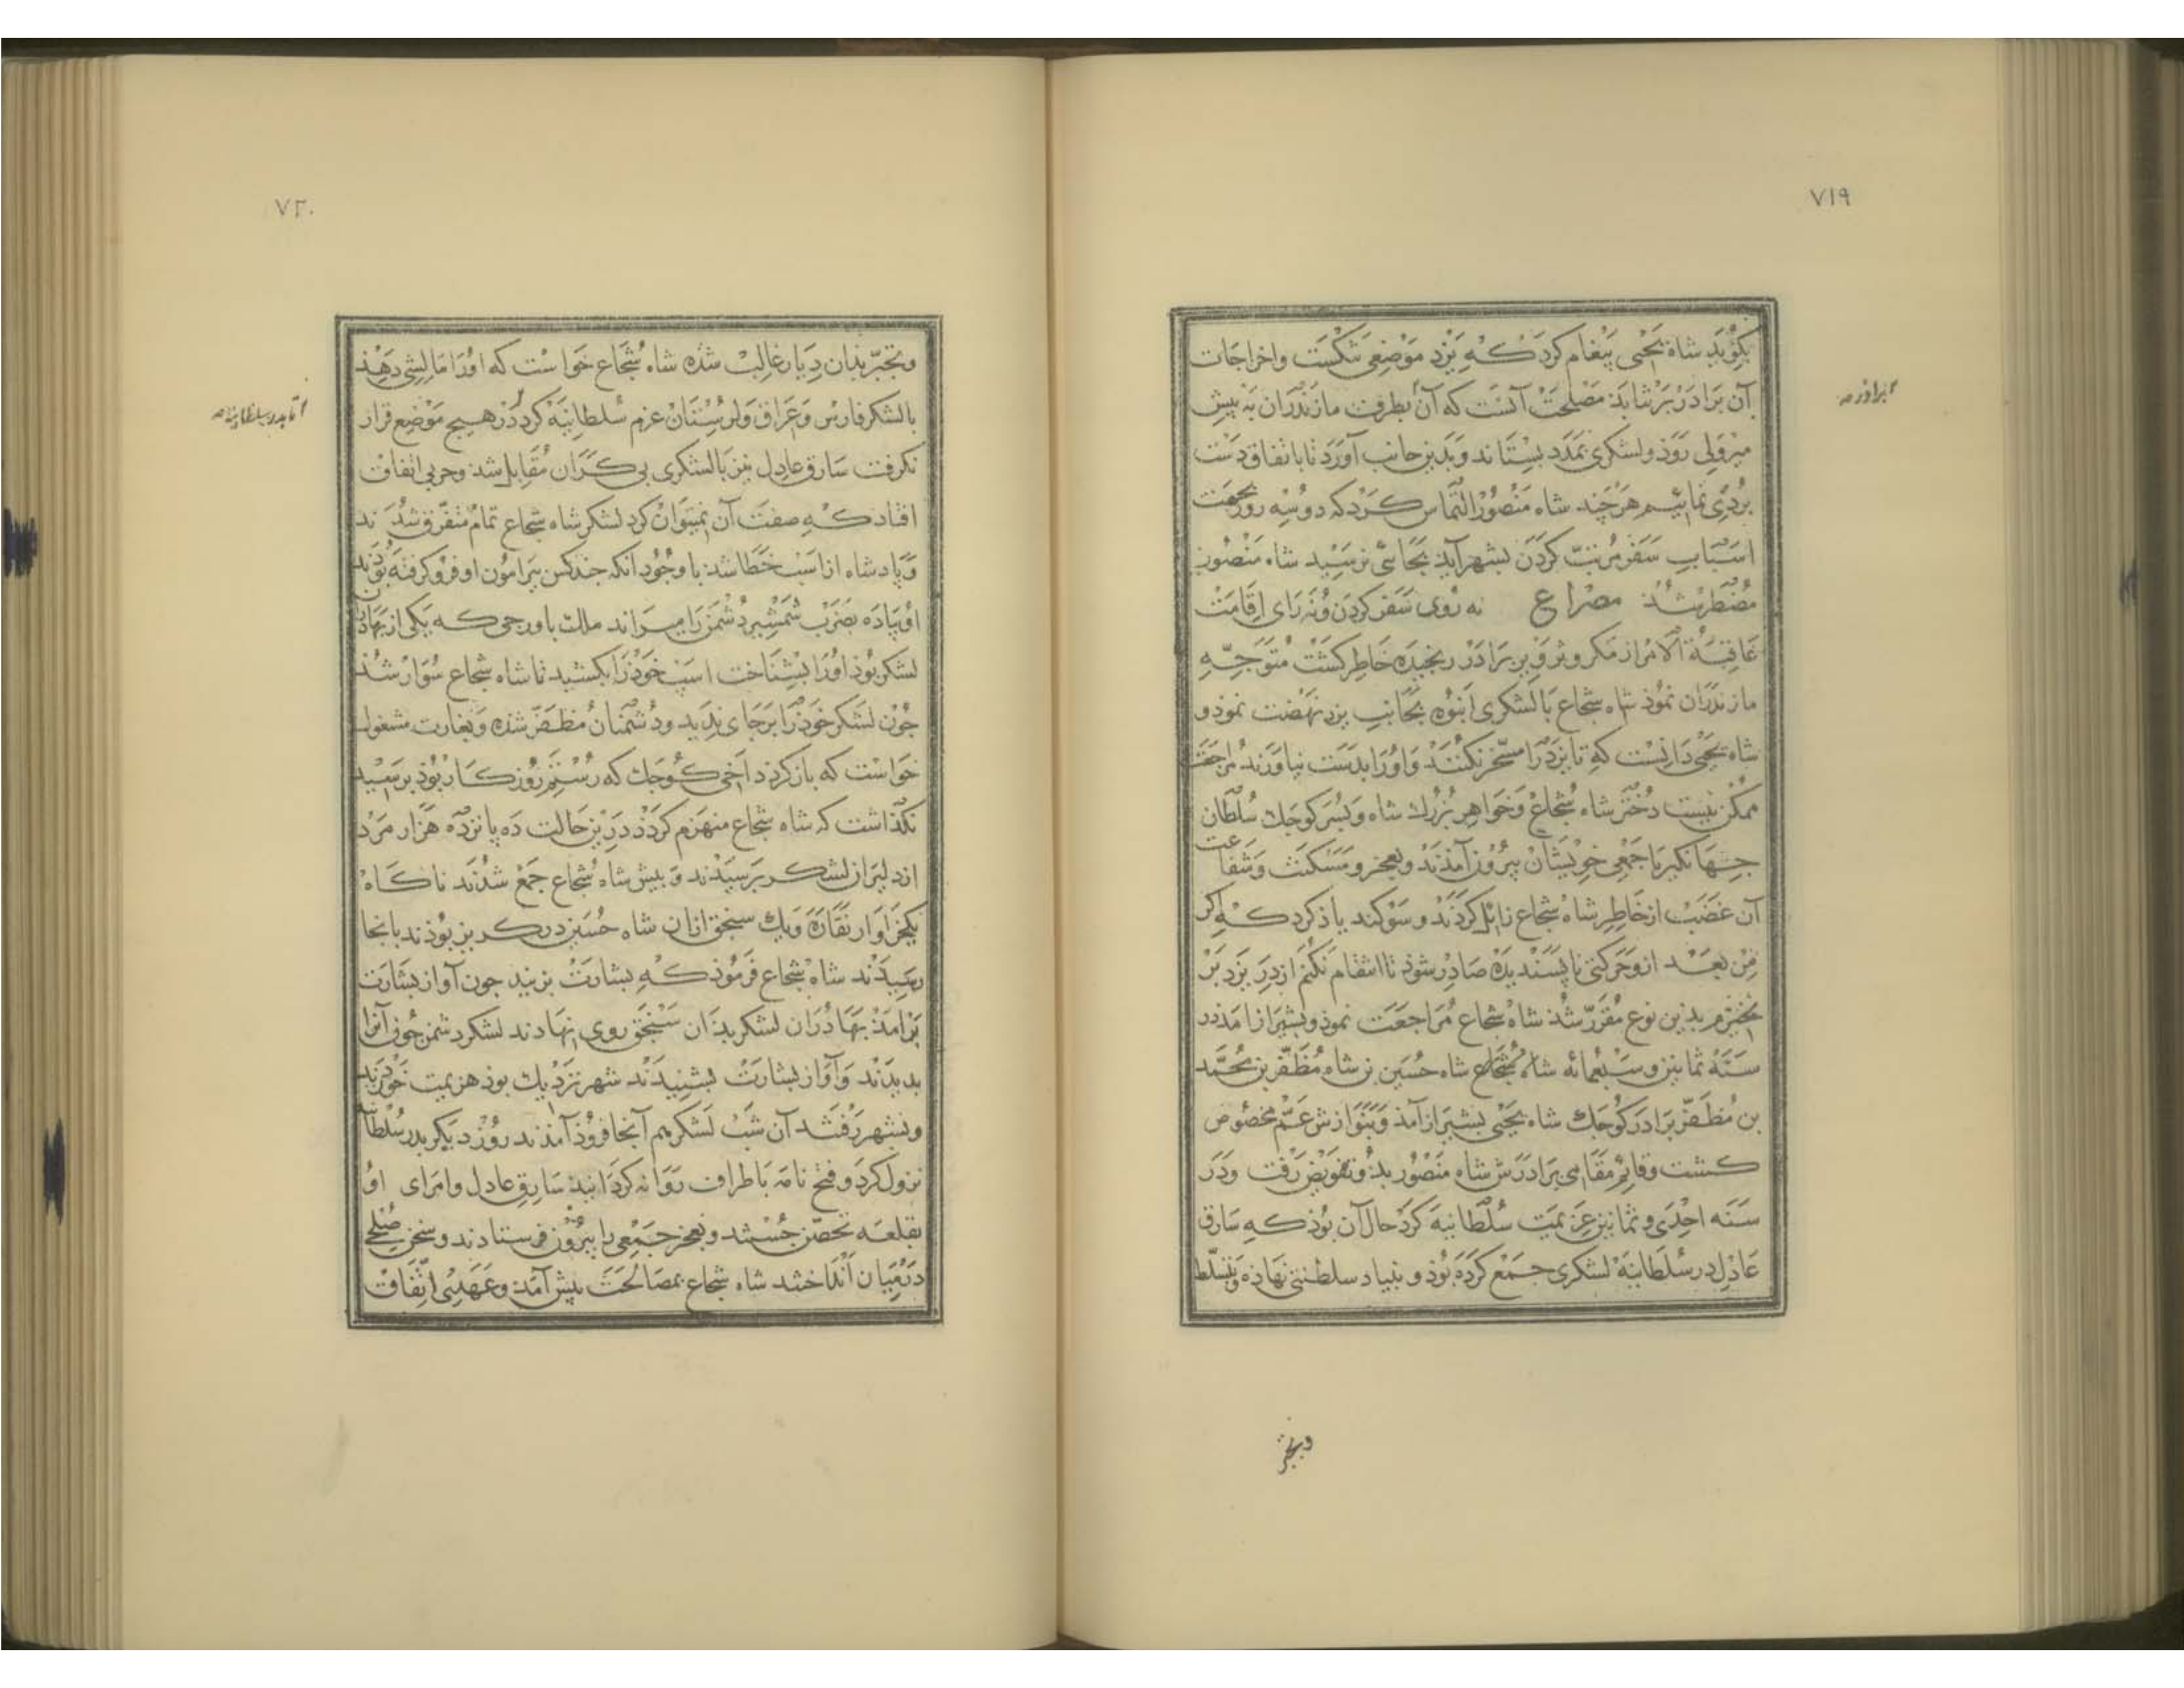 ۷۱۹
بکوید شاه یحیی پیغام کرد که یزد موضعی شکست واخراجات
آن برادر برنتابد مصلحت آنست که آن بطرف مازندران به پیش
میرولی روذ ولشکری بمدد بستاند وبدین جانب آورد تا باتفاق دست
بردی نماییم هرچند شاه منصور التماس کرد که دو سه روز بجهت
اسباب سفر مرتب کردن بشهر آید بجائی نرسید شاه منصور
مضطر شد مصراع نه روی سفر کردن ونه رای اقامت
عاقبة الامر از مکر وتزویر برادر رنجیده خاطر کشت متوجه
مازندران نموذ شاه شجاع با لشکری انبوه بجانب یزد نهضت نموذ و
شاه یحیی دانست که تا یزد را مسخر نکنند واورا بدست نیاورند مراجعت
ممکن نیست دختر شاه شجاع وخواهر بزرك شاه وپسر کوجك سلطان
جهانکیر با جمعی خویشان بیرون آمذند وبعجز ومسکنت وشفاعت
آن غضب از خاطر شاه شجاع زائل کردند وسوکند یاذ کرد که اکر
من بعد ازو حرکتی ناپسندیده صادر شوذ تا انتقام نکنم از در یزد بر
نخیزم بدین نوع مقرر شد شاه شجاع مراجعت نموذ وبشیراز امذ در
سنه ثمانین وسبعمائه شاه شجاع شاه حسین بن شاه مظفر بن محمد
بن مظفر برادر کوجك شاه یحیی بشیراز آمذ وبنوازش عم مخصوص
کشت وقائم مقامی برادرش شاه منصور بدو تفویض رفت ودر
سنه احدی وثمانین عزیمت سلطانیه کرد حال آن بوذ که سارق
عادل در سلطانیه لشکری جمع کرده بوذ و بنیاد سلطنتی نهاذه وتسلط
وتجبر
۷۲۰
وتجبر بذان دیار غالب شذه شاه شجاع خواست که اورا مالشی دهذ
بالشکر فارس وعراق ولرستنان عزم سلطانیه کرد در هیچ موضع قرار
نکرفت سارق عادل نیز با لشکری بی کران مقابل شد وحربی اتفاق
افتاد که صفت آن نمیتوان کرد لشکر شاه شجاع تمام متفرق شدند
وپادشاه از اسب خطا شد با وجود آنکه جند کس پیرامون او فرو کرفته بوذند
او پیاده بضرب شمشیر دشمن را میراند ملك باورجی که یکی از بهادران
لشکر بوذ اورا بشناخت اسب خوذ را بکشید تا شاه شجاع سوار شد
جون لشکر خوذ را بر جای ندید ودشمنان مظفر شذه وبغارت مشغول
خواست که باز کردد اخی کوجك که رستم روزکار بوذ برسید
نکذاشت که شاه شجاع منهزم کردذ درین حالت ده پانزده هزار مرد
از دلیران لشکر برسیدند وبیش شاه شجاع جمع شدند ناکاه
یکجزاوار نقاره ویك سنجق ازان شاه حسین در کریز بوذند بانجا
رسیدند شاه شجاع فرموذ که بشارت بزنید جون آواز بشارت
برامذ بهادران لشکر بدان سنجق روی نهادند لشکر دشمن جون آنرا
بدیدند وآواز بشارت بشنیدند شهر نزدیك بوذ هزیمت خوردند
وبشهر رفتند آن شب لشکر هم آنجا فروذ آمذند روز دیکر بدر سلطانیه
نزول کرد وفتح نامه باطراف روانه کردانید سارق عادل وامرای او
بقلعه تحصن جستند وبعجز جمعی را بیرون فرستادند وسخن صلحی
در میان انداختند شاه شجاع بمصالحت پیش آمذ وعهدی اتفاق